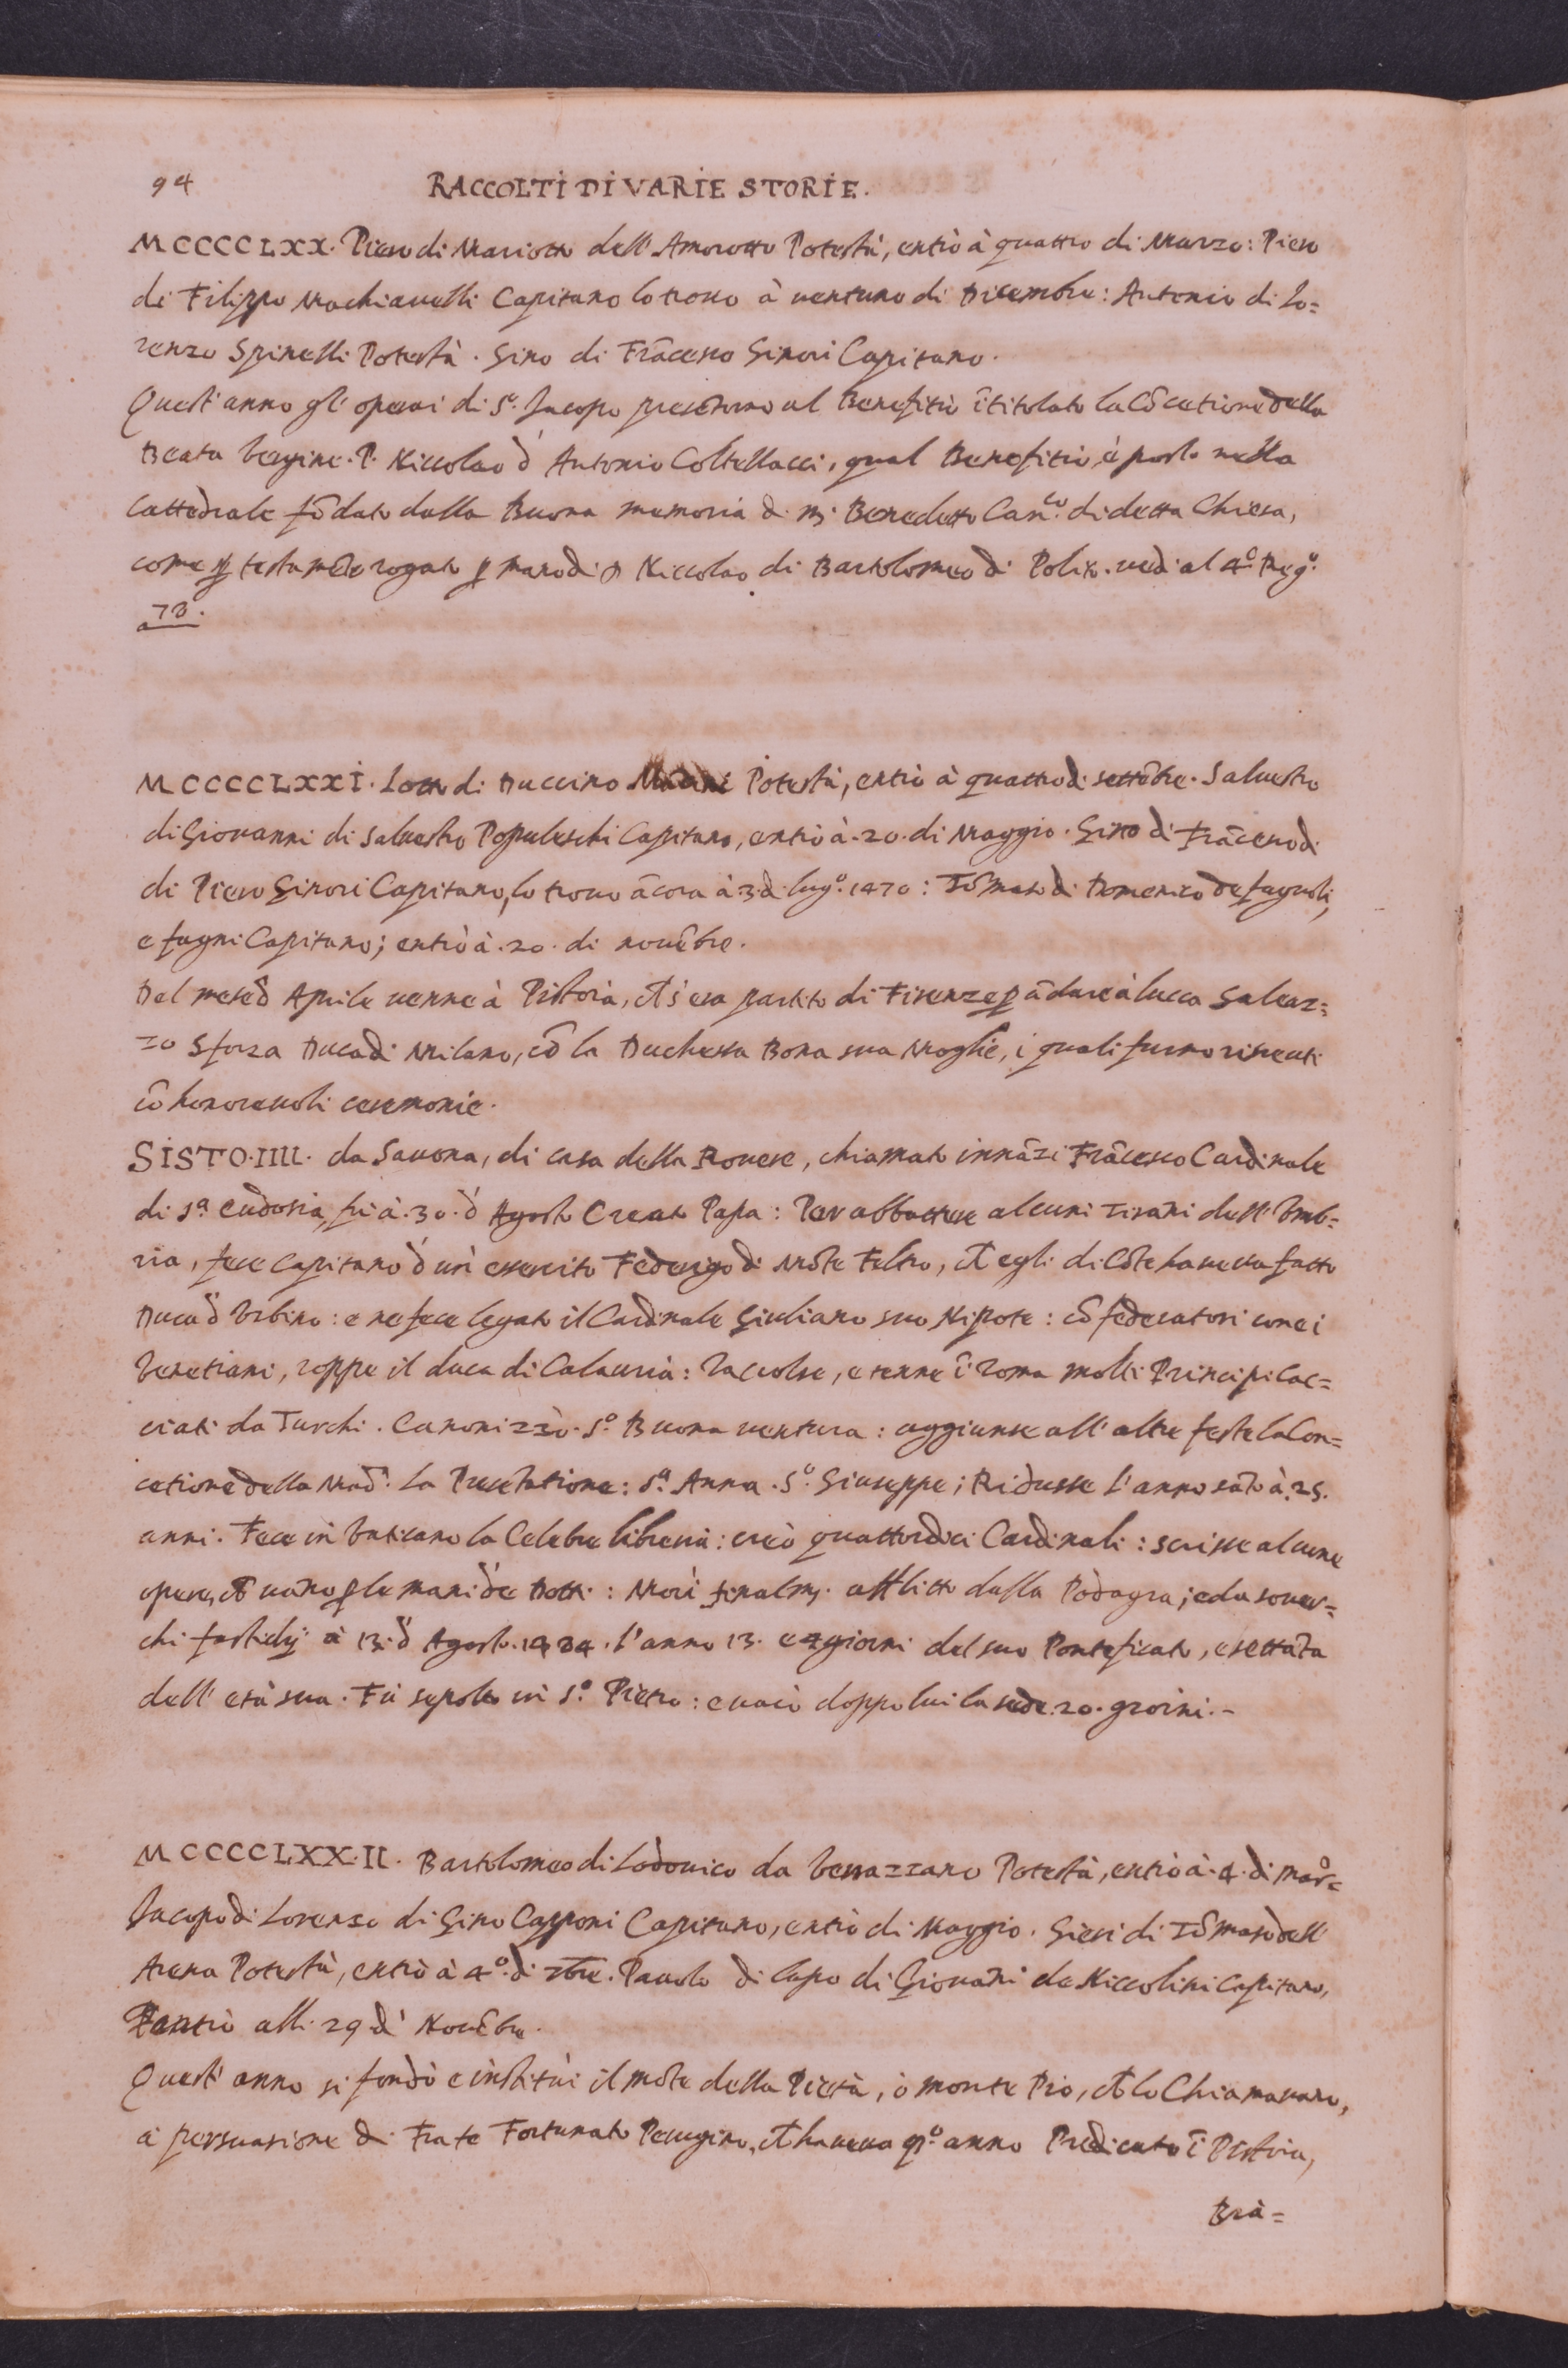 94
RACCOLTI DI VARIE STORIE.
MCCCCLXX. Piero di Mariotto dell'Amorotto Potestà, entrò à quattro di Marzo: Piero
di Filippo Machiauelli Capitano lo trouo à uentuno di Dicembre: Antonio di Lo=
renzo Spinelli Potestà. Gino di Frãcesco Ginori Capitano.
Quest'anno gl'operai di S.º Jacopo presẽtorno al Benefitio ĩtitolato la Cõcetione della
Beata Vergine. P. Niccolao d' Antonio Coltellacci, qual Benefitio, è posto nella
Cattedrale fõdato dalla Buona memoria di m̃. Benedetto Can.co di detta Chiesa,
come p̱ testamẽto rogato p̱ mano di Niccolao di Bartolomeo di Polito. uedi al 4.º Reg.º
73.
MCCCCLXXI. Lotto di Duccino Potestà, entrò à quattro di settẽbre. Saluestro
di Giouanni di Saluestro Popoleschi Capitano, entrò à. 20. di Maggio. Gino di Frãcesco di
di Piero Ginori Capitano, lo trouo ãcora à 3. di lug.º 1470: Tõmaso di Domenico de fagnoli,
e fagni Capitano; entrò à. 20. di nouẽbre.
Del mese d' Aprile uenne à Pistoia, ch̃ s'era partito di Firenze p̱ ãdare à lucca Galeaz=
zo Sforza Duca di Milano, cõ la Duchessa Bona sua Moglie, i quali furno riceuuti
cõ honoreuoli ceremonie.
SISTO. IIII. da Sauona, di casa della Rouere, chiamato innãzi Frãcesco Cardinale
di S.ª Eudosia, fù à. 30. d' Agosto Creato Papa: Per abbattere alcuni Tirãni dell'Vmb=
ria, fece Capitano d'un' essercito Federigo di Mõte Feltro, ch̃ egli di Cõte haueua fatto
Duca d'Vrbino: e ne fece legato il Cardinale Giuliano suo Nipote: cõfederatosi con ei
Venetiani, roppe il duca di Calauria: raccolse, e tenne ĩ Roma molti Principi Cac=
ciati da Turchi. Canonizzò. S.º Buona uentura: aggiunse all'altre feste la Con=
cetione della Mad.ª La Presẽtatione: S.ª Anna. S.º Giuseppe; Ridusse l'anno sãto à. 25.
anni. Fece in Vaticano la Celebre libreria: creò quattordici Cardinali: scrisse alcune
opere, ch̃ uãno p̱ le mani de Dotti: Morì finalm̃. afflitto dalla Podagra; e da souer=
chi fastidij à 13. d' Agosto. 1484. l'anno 13. e 4 giorni del suo Ponteficato, e settãta
dell'età sua. Fù sepolto in S.º Pietro: e uacò doppo lui la sede. 20. groini.-
MCCCCLXXII. Bartolomeo di Lodouico da Verrazzano Potestà, entrò à. 4. di mar.º
Jacopo di Lorenzo di Gino Capponi Capitano, entrò di Maggio. Gieri di Tõmaso dell'
Arena Potestà, entrò à 4.º di 7bre. Pauolo di lapo di Giouãni de Niccolini Capitano,
entrò alli 29 di Nouẽbre.
Quest' anno si fondò e institùi il mõte della Pietà, ò monte Pio, ch̃ lo Chiamauano,
à persuasione di Frate Fortunato Perugino, ch̃ haueua qt.º anno Predicato ĩ Pistoia,
Brà=